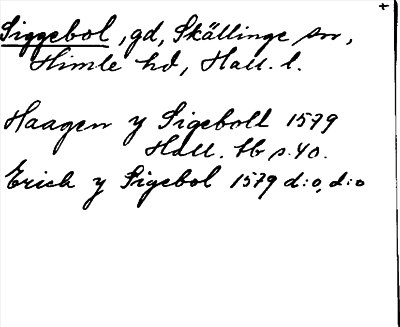 +
Siggebol, gd, Skällinge sn,
Himle hd, Hall. l.
Haagen y Sigeboll 1579
Hall. tb s. 40.
Erich y Sigebol 1579 d:o, d:o